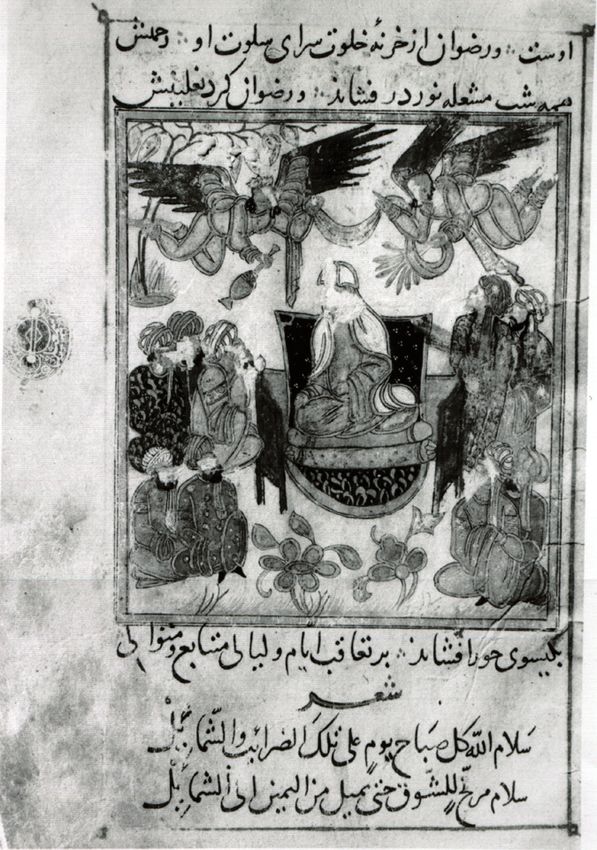 اوست ∴ ورضوان از خزنهٔ خلوت سرای سلوت او ∴ رحمتش
همه شب مشعله نور در فشاند ∴ ورضوان گرد نعلینش
بگیسوی حورا فشاند ∴ بر تعاقب ایام و لیالی متتابع و متوالی
شعر
سلام الله كل صباح يوم على تلك الضرائب والشمائل
سلام مرنح للشوق حتى يميل من اليمين الى الشمائل